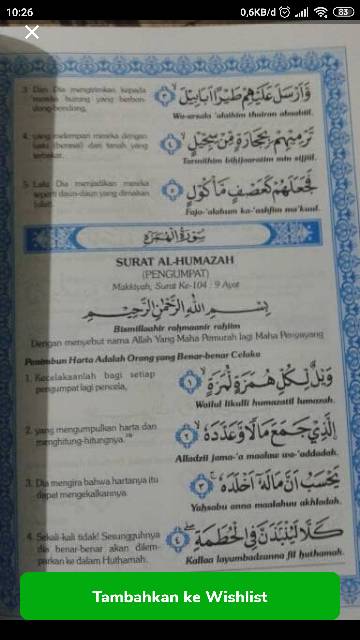 10:26
0,6KB/d
83
3. Dan Dia mengirimkan kepada
mereka burung yang berbon-
dong-bondong,
وَّأَرْسَلَ عَلَيْهِمْ طَيْرًا أَبَابِيْلَ ۙ ٣
Wa-arsala 'alaihim thairan abaabiil.
4. yang melempari mereka dengan
batu (berasal) dari tanah yang
terbakar,
تَرْمِيْهِمْ بِحِجَارَةٍ مِّنْ سِجِّيْلٍ ۙ ٤
Tarmiihim bihijaaratim min sijjiil.
5. Lalu Dia menjadikan mereka
seperti daun-daun yang dimakan
(ulat).
فَجَعَلَهُمْ كَعَصْفٍ مَّأْكُوْلٍ ٥
Faja-'alahum ka-'ashfim ma'kuul.
سُوْرَةُ الْهُمَزَةِ
SURAT AL-HUMAZAH
(PENGUMPAT)
Makkiyah, Surat Ke-104 : 9 Ayat
بِسْمِ اللّٰهِ الرَّحْمٰنِ الرَّحِيْمِ
Bismillaahir rahmaanir rahiim
Dengan menyebut nama Allah Yang Maha Pemurah lagi Maha Penyayang
Penimbun Harta Adalah Orang yang Benar-benar Celaka
1. Kecelakaanlah bagi setiap
pengumpat lagi pencela,
وَيْلٌ لِّكُلِّ هُمَزَةٍ لُّمَزَةٍ ۙ ١
Wailul likulli humazatil lumazah.
2. yang mengumpulkan harta dan
menghitung-hitungnya.
الَّذِيْ جَمَعَ مَالًا وَّعَدَّدَهٗ ۙ ٢
Alladzii jama-'a maalaw wa-'addadah.
3. Dia mengira bahwa hartanya itu
dapat mengekalkannya.
يَحْسَبُ أَنَّ مَالَهٗٓ أَخْلَدَهٗ ۚ ٣
Yahsabu anna maalahuu akhladah.
4. Sekali-kali tidak! Sesungguhnya
dia benar-benar akan dilem-
parkan ke dalam Huthamah.
كَلَّا لَيُنْۢبَذَنَّ فِى الْحُطَمَةِ ۖ ٤
Kallaa layumbadzanna fil huthamah.
Tambahkan ke Wishlist